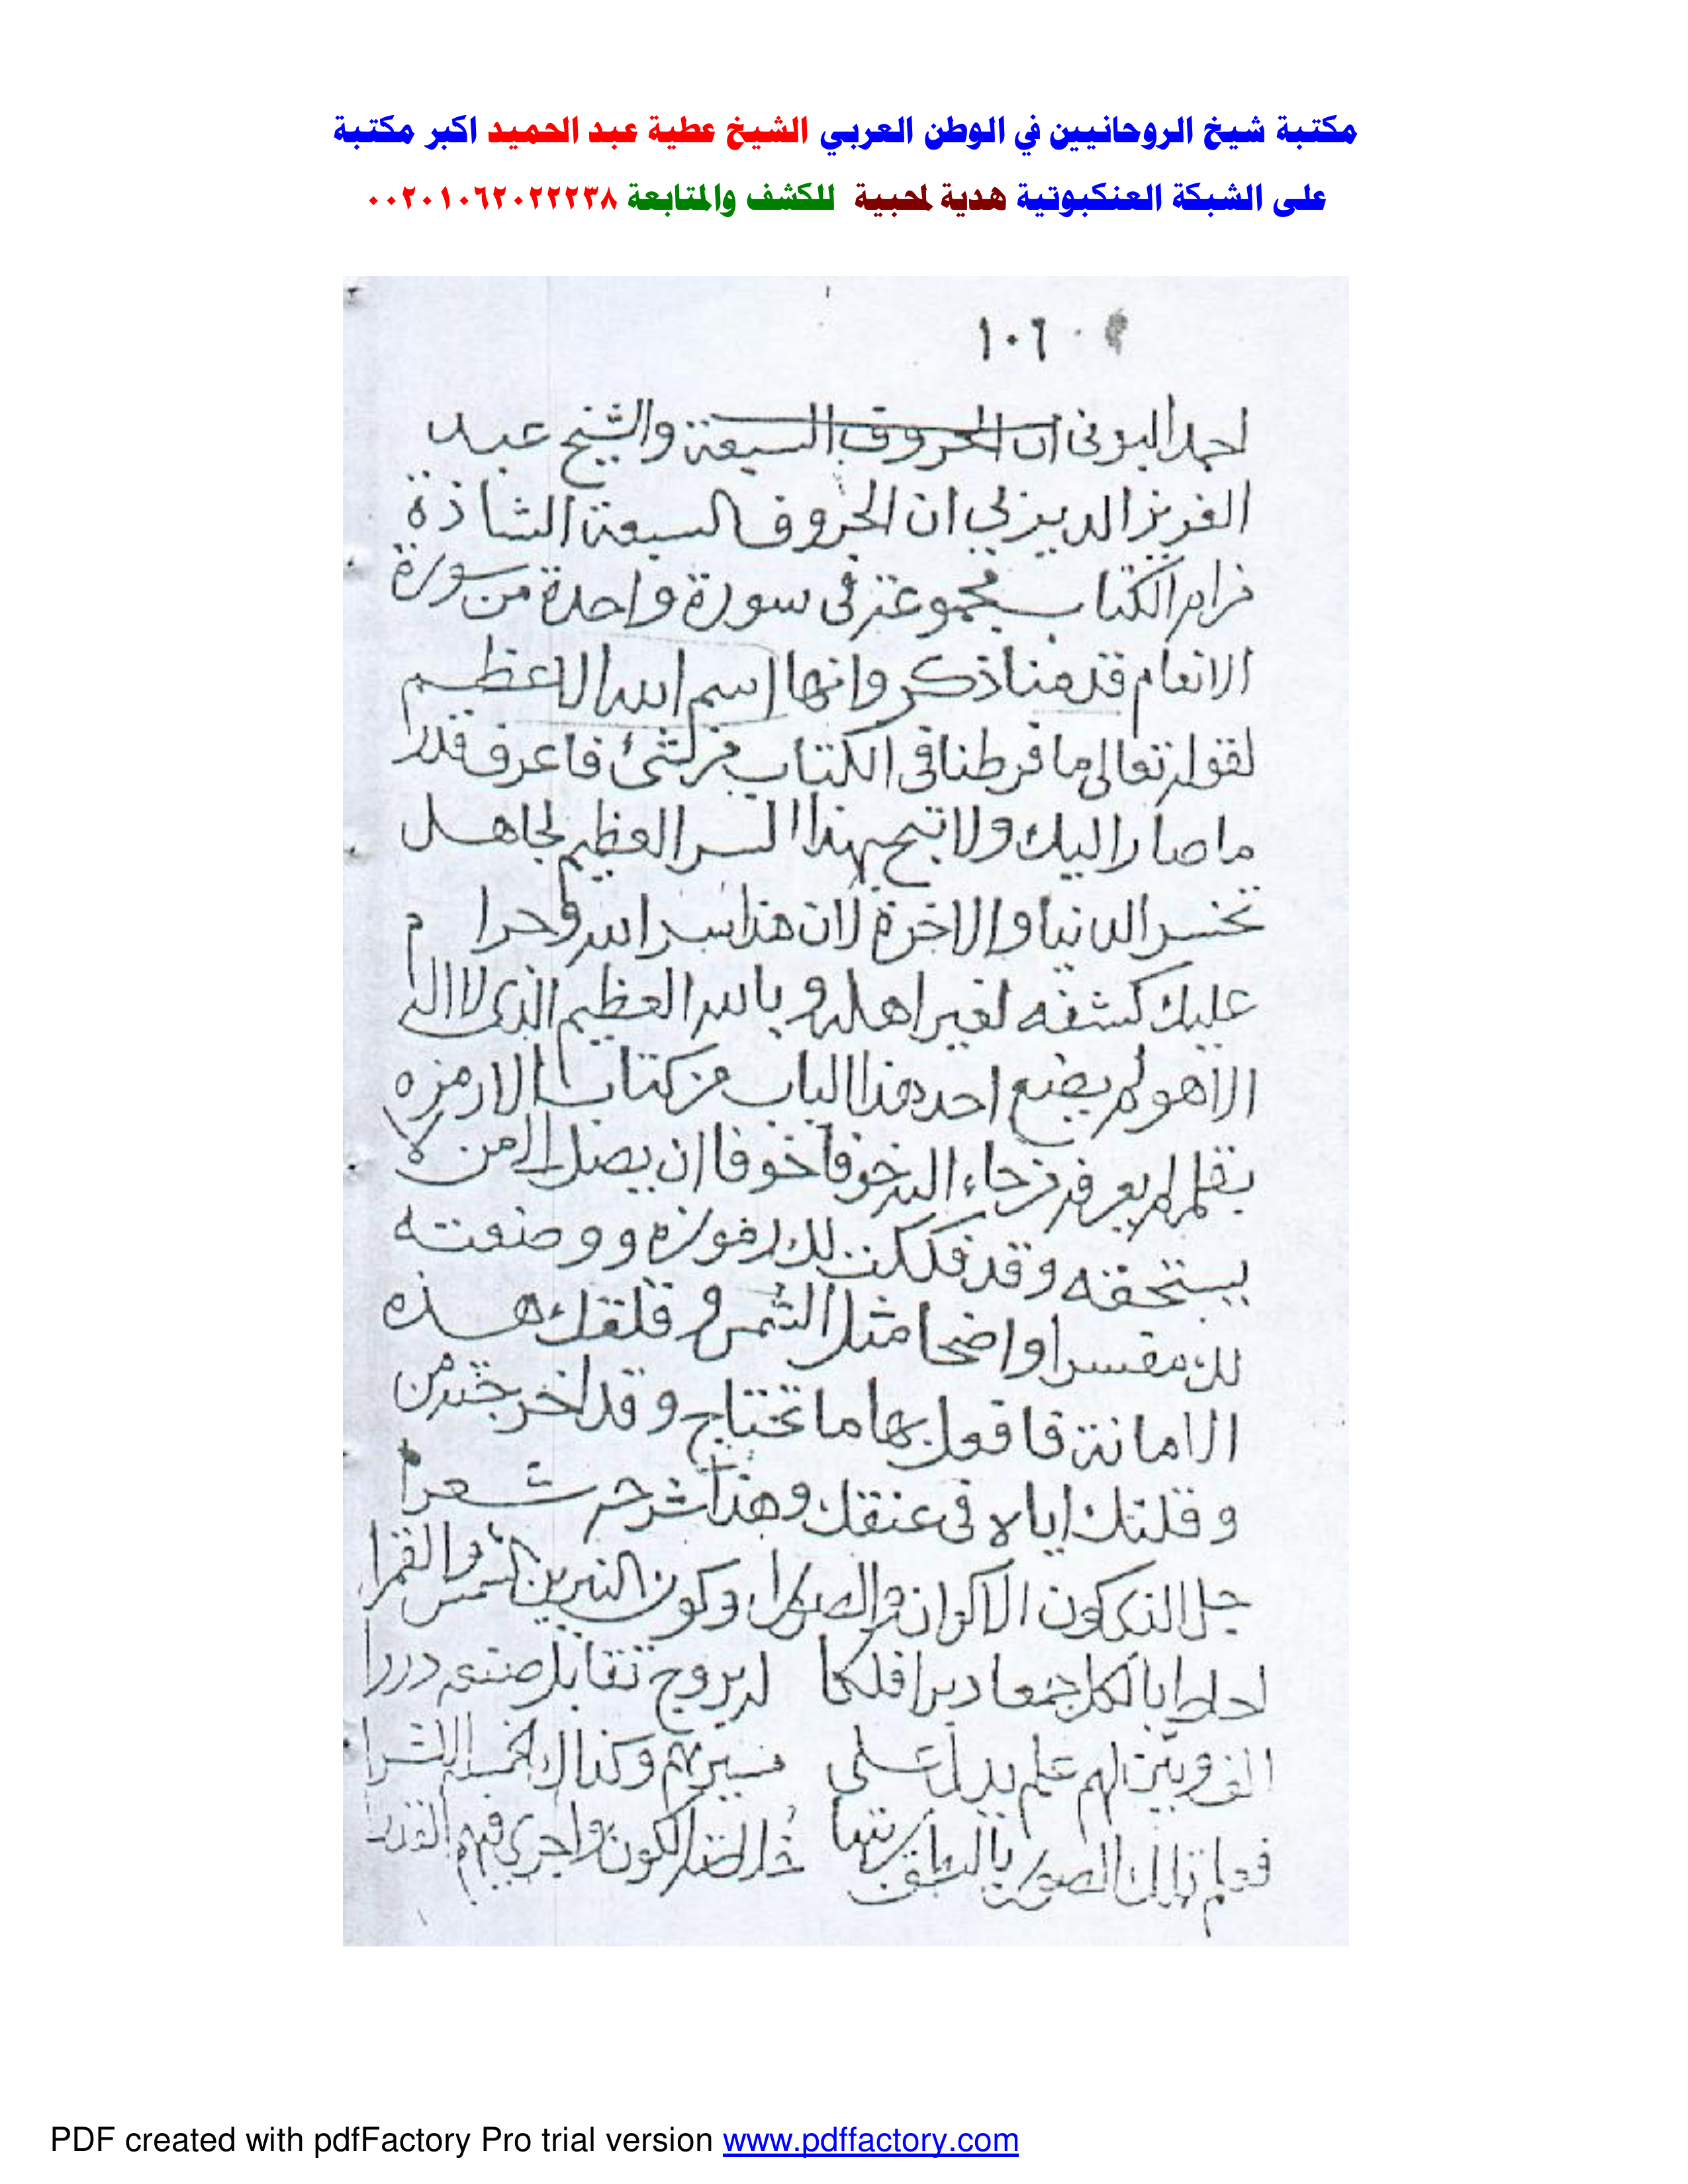 مكتبة شيخ الروحانيين في الوطن العربي الشيخ عطية عبد الحميد اكبر مكتبة
على الشبكة العنكبوتية هدية لمحبية للكشف والمتابعة ٠٠٢٠١٠٦٢٠٢٢٢٣٨
١٠٦
احمد البونى ان الحروف السبعة والشيخ عبد
العزيز الديريني ان الحروف السبعة الشاذة
من ام الكتاب مجموعة فى سورة واحدة من سورة
الانعام قدمنا ذكر وانها اسم الله الاعظم
لقوله تعالى ما فرطنا فى الكتاب من شئ فاعرف قدرا
ما صار اليك ولا تبح بهذا السر العظيم لجاهل
تخسر الدنيا والاخرة لان هذا سر الله وحرام
عليك كشفه لغير اهله وبالله العظيم الذى لا اله
الا هو لم يضع احد هذا الباب من كتاب الا رمزه
بقلم لم يعرفه خوفا خوفا ان يصل الا من لا
يستحقه وقد فككت لك رموزه ووضعته
لك مفسرا واضحا مثل الشمس وقلقك هذه
الامانة فافعل بها ما تحتاج وقد اخرجته من
وقلتك اياه فى عنقك وهذا شرحه شعرا
جل الذى كون الاكوان والصورا وكون النيرين الشمس والقمرا
احاط بالكل جمعا دبرا فلكا لبروج تقابل صنعه دررا
علم يدل على سيرهم وكذاك
فعلم تلك الصور الكون واجرى فيهم القدرا
PDF created with pdfFactory Pro trial version www.pdffactory.com